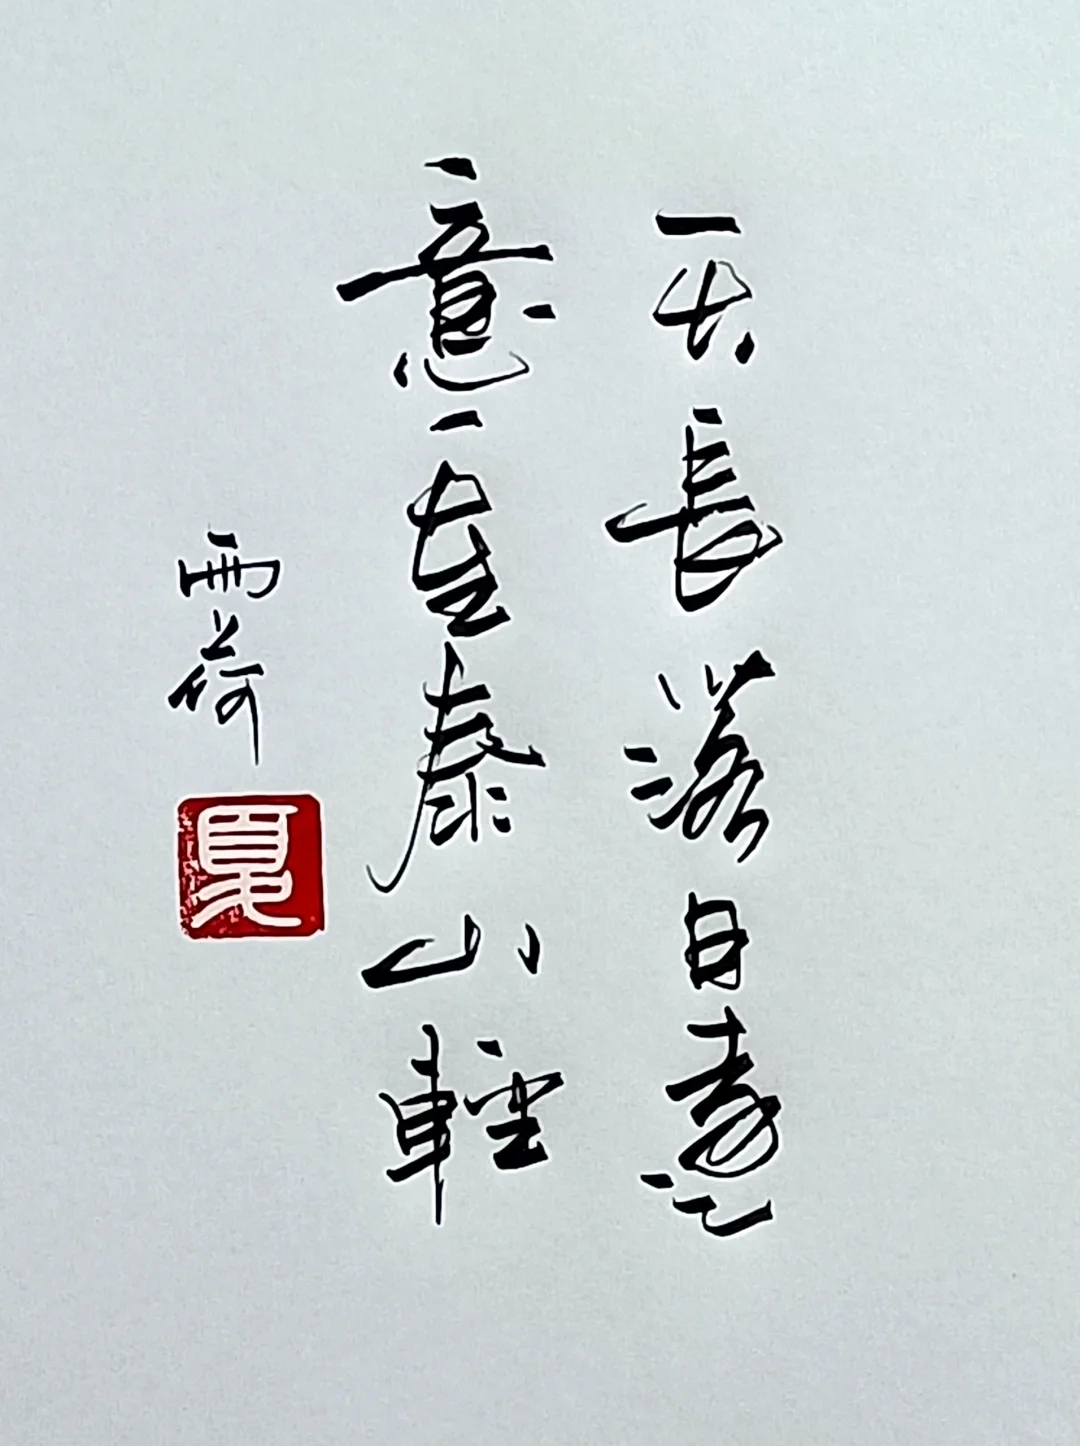 天長落日遠
意在泰山輕
雨荷
夏